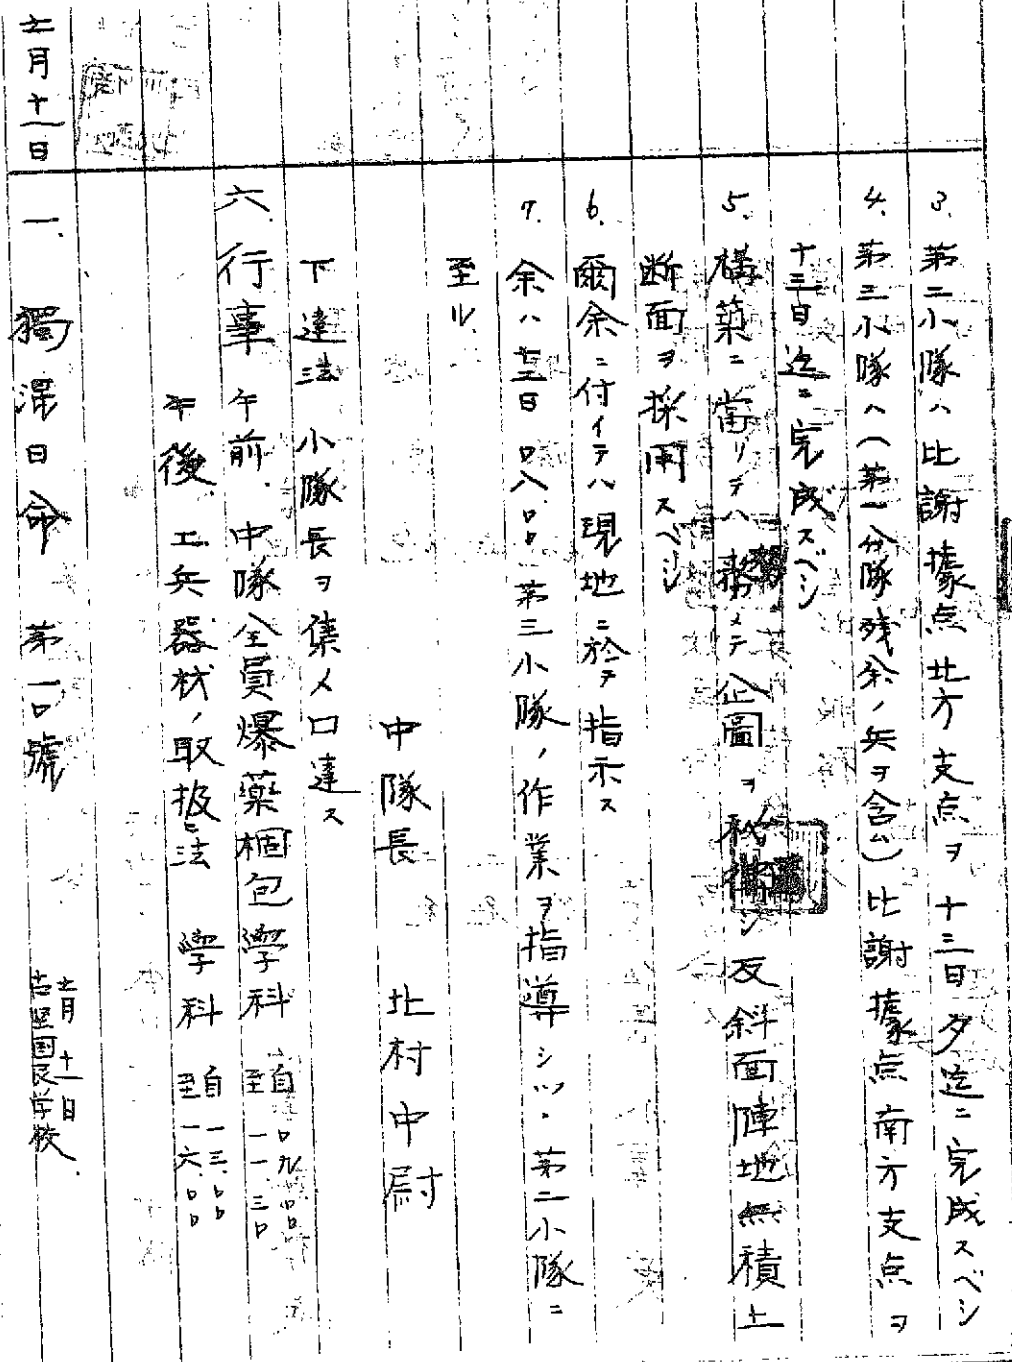 3. 第二小隊ハ比謝據点北方支点ヲ十三日夕迄ニ完成スベシ
4. 第三小隊ハ(第一分隊残余ノ兵ヲ含ム)比謝據点南方支点ヲ
十三日迄ニ完成スベシ
5. 構築ニ當リテハ務メテ企圖ヲ秘シ反斜面陣地無積土
断面ヲ採用スベシ
6. 爾余ニ付イテハ現地ニ於テ指示ス
7. 余ハ 日〇八、〇〇第三小隊ノ作業ヲ指導シツツ、第二小隊ニ
至ル、
中隊長 北村中尉
下達法 小隊長ヲ集メ口達ス
六、行事 午前、中隊全員爆薬梱包學科 自〇九〇〇 至一一三〇
午後、工兵器材ノ取扱法 學科 自一三、〇〇 至一六、〇〇
七月十一日
一、獨混日命第一〇號 七月十一日 古堅国民学校、